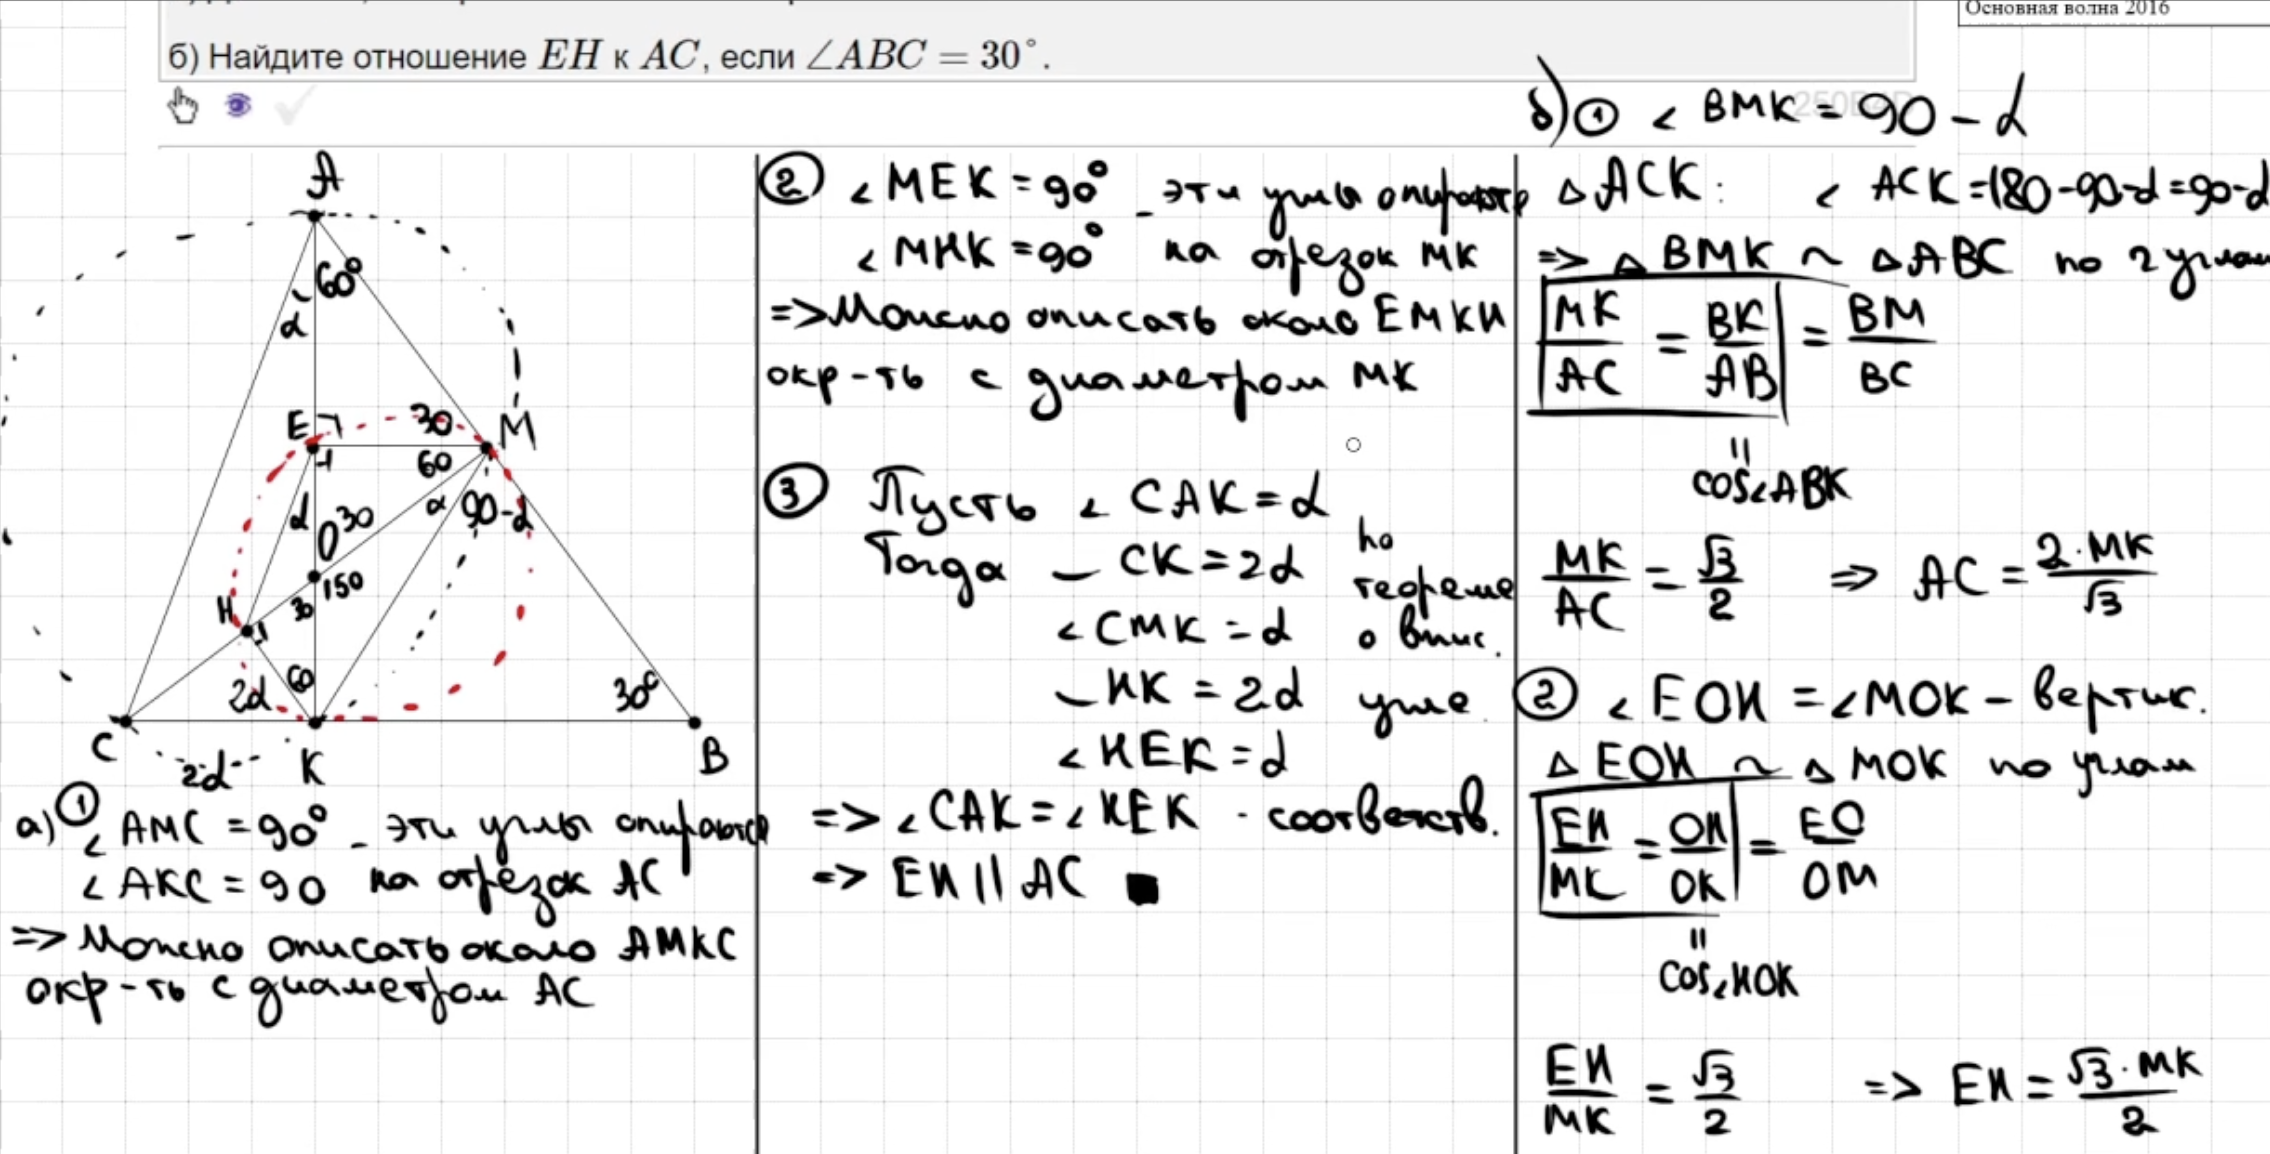 Основная волна 2016
б) Найдите отношение EH к AC, если ∠ABC = 30°.
A
60°
α
E
30
M
60
α
90-α
α
O
30
150
30
H
60
2α
30°
C
2α
K
B
а) ① ∠ AMC = 90° - эти углы опираются
∠ AKC = 90 на отрезок AC
=> Можно описать около AMKC
окр-ть с диаметром AC
② ∠ MEK = 90° - эти углы опираются
∠ MHK = 90° на отрезок MK
=> Можно описать около EMKH
окр-ть с диаметром MK
③ Пусть ∠ CAK = α
Тогда ◡ CK = 2α по
теореме
∠ CMK = α о впис.
◡ HK = 2α угле
∠ HEK = α
=> ∠ CAK = ∠ HEK - соответств.
=> EH || AC ■
б) ① ∠ BMK = 90 - α
△ ACK: ∠ ACK = 180-90-α = 90-α
=> △ BMK ~ △ ABC по 2 углам
MK/AC = BK/AB = BM/BC
||
cos∠ABK
MK/AC = √3/2 => AC = 2·MK/√3
② ∠ EOH = ∠ MOK - вертик.
△ EOH ~ △ MOK по углам
EH/MK = OH/OK = EO/OM
||
cos∠HOK
EH/MK = √3/2 => EH = √3·MK/2